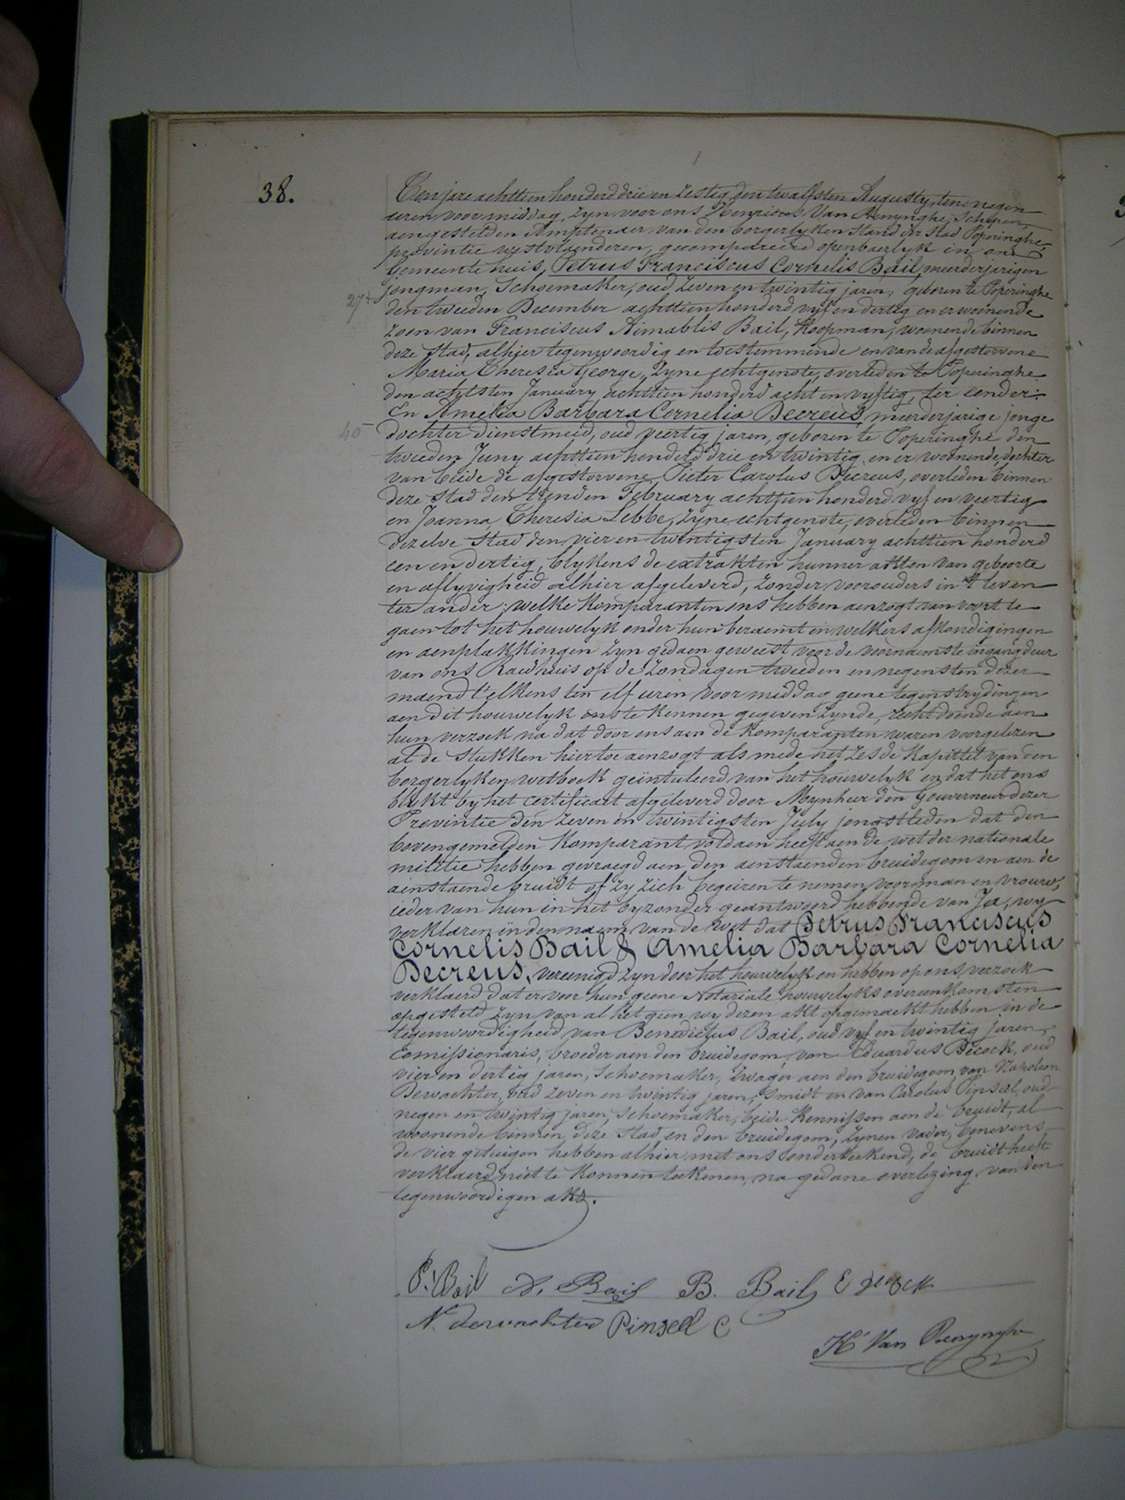 38.
Ten jare achttien honderd drie en zestig, den twalfsten Augusty, tens negen
uren voormiddag, zyn voor ons Henricus Van Renynghe, Schepen,
aengestelden Amptenaer van den borgerlyken stand der stad Poperinghe,
provintie westvlaenderen, gecompareerd openbaerlyk in ons
Gemeente huis, Petrus Franciscus Cornelis Bail, meerderjarigen
27
jongman, Schoemaker, oud zeven en twintig jaren, geboren te Poperinghe
den tweeden December achttien honderd vyf en dertig en er woonende
zoon van Franciscus Aimablis Bail, Koopman, woonende binnen
deze stad, alhier tegenwoordig en toestemmende en van de afgestorvene
Maria Theresia George, zyne echtgenote, overleden te Poperinghe
den achtsten January achttien honderd acht en vyftig, ter eender:
En Amelia Barbara Cornelia Decreus, meerderjarige jonge
40
dochter dienstmeid, oud veertig jaren, geboren te Poperinghe den
tweeden Juny achttien honderd drie en twintig en er woonende, dochter
van beide de afgestorvene Pieter Carolus Decreus, overleden binnen
deze stad den tienden February achttien honderd vyf en veertig
en Joanna Theresia Lebbe, zyne echtgenote, overleden binnen
dezelve stad den vier en twintigsten January achttien honderd
een en dertig, blykens de extrakten hunner akten van geboorte
en aflyvigheid alhier afgeleverd, zonder voorouders in 't leven
ter ander: welke komparanten ons hebben aenzogt van voort te
gaen tot het houwelyk onder hun beraemt en welkers afkondigingen
en aenplakkingen zyn gedaen geweest voor de voornaemste ingangdeur
van ons Raedhuis op de zondagen tweeden en negensten dezer
maend t'elkens ten elf uren voormiddag geene tegenstrydingen
aen dit houwelyk ons te kennen gegeven zynde, recht doende aen
hun verzoek na dat door ons aen de komparanten waren voorgelezen
al de stukken hiertoe aenzogt als mede het zesde kapittel van den
borgerlyken wetboek geïntuleerd van het houwelyk en dat het ons
blykt by het certificaet afgeleverd door Mynheer den Gouverneur dezer
Provintie den zeven en twintigsten July jongstleden dat den
bovengemelden komparant voldaen heeft aen de wet der nationale
militie hebben gevraegd aen den aenstaenden bruidegom en aen de
aenstaende bruidt of zy zich begeiren te nemen voor man en vrouw,
ieder van hun in het byzonder geantwoord hebbende van Ja, wy
verklaren in den naem van de wet dat Petrus Franciscus
Cornelis Bail & Amelia Barbara Cornelia
Decreus, vereenigd zyn door het houwelyk en hebben op ons verzoek
verklaerd dat er voor hun geene Notariale houwelyks overeenkomsten
opgesteld zyn van al het gein wy dezen akt opgemaekt hebben in de
tegenwoordigheid van Benedictus Bail, oud vyf en twintig jaren
Comissionaris, broeder aen den bruidegom, van Eduardus Decock, oud
vier en dertig jaren, Schoemaker, zwager aen den bruidegom, van Napoleon
Dewachter, oud zeven en twintig jaren, Smidt en van Carolus Pinseel, oud
negen en twintig jaren, Schoemaker, beide kennissen aen de bruidt, al
woonende binnen deze stad, en den bruidegom, zynen vader, benevens
de vier getuigen hebben alhier met ons onderteekend, de bruidt heeft
verklaerd niet te konnen teekenen, na gedane overlezing van den
tegenwoordigen akt.
P. Bail A. Bail B. Bail E decock
N. dewachter Pinseel C
H. Van Renynghe